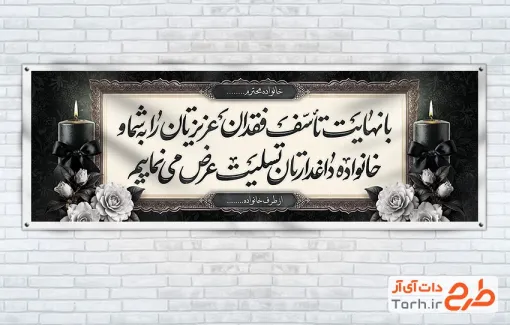 خانواده محترم ........
با نهایت تأسف فقدان عزیزتان را به شما و
خانواده داغدارتان تسلیت عرض می نماییم
از طرف خانواده ........
طرح دات آی آر
Tarh.ir